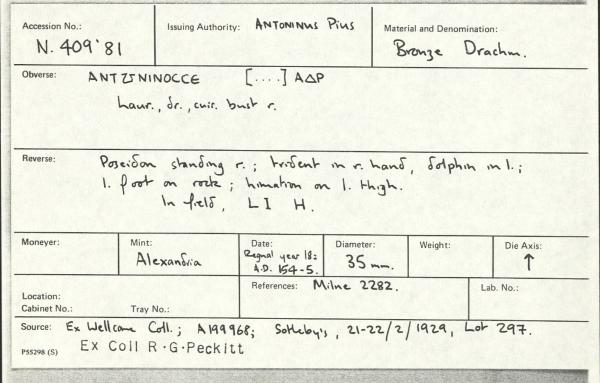 Accession No.:
N. 409'81
Issuing Authority: ANTONINUS PIUS
Material and Denomination:
Bronze Drachm.
Obverse: ANTѠNINOCCE [....] AΔP
Laur., dr., cuir. bust r.
Reverse: Poseidon standing r.; trident in r. hand, dolphin in l.;
l. foot on rock; himation on l. thigh.
In field, L I H.
Moneyer:
Mint:
Alexandria
Date:
Regnal year 18:
A.D. 154-5.
Diameter:
35 mm.
Weight:
Die Axis:
↑
Location:
Cabinet No.: Tray No.:
References: Milne 2282.
Lab. No.:
Source: Ex Wellcome Coll.; A199968; Sotheby's, 21-22/2/1929, Lot 297.
P55298 (S) Ex Coll R.G.Peckitt